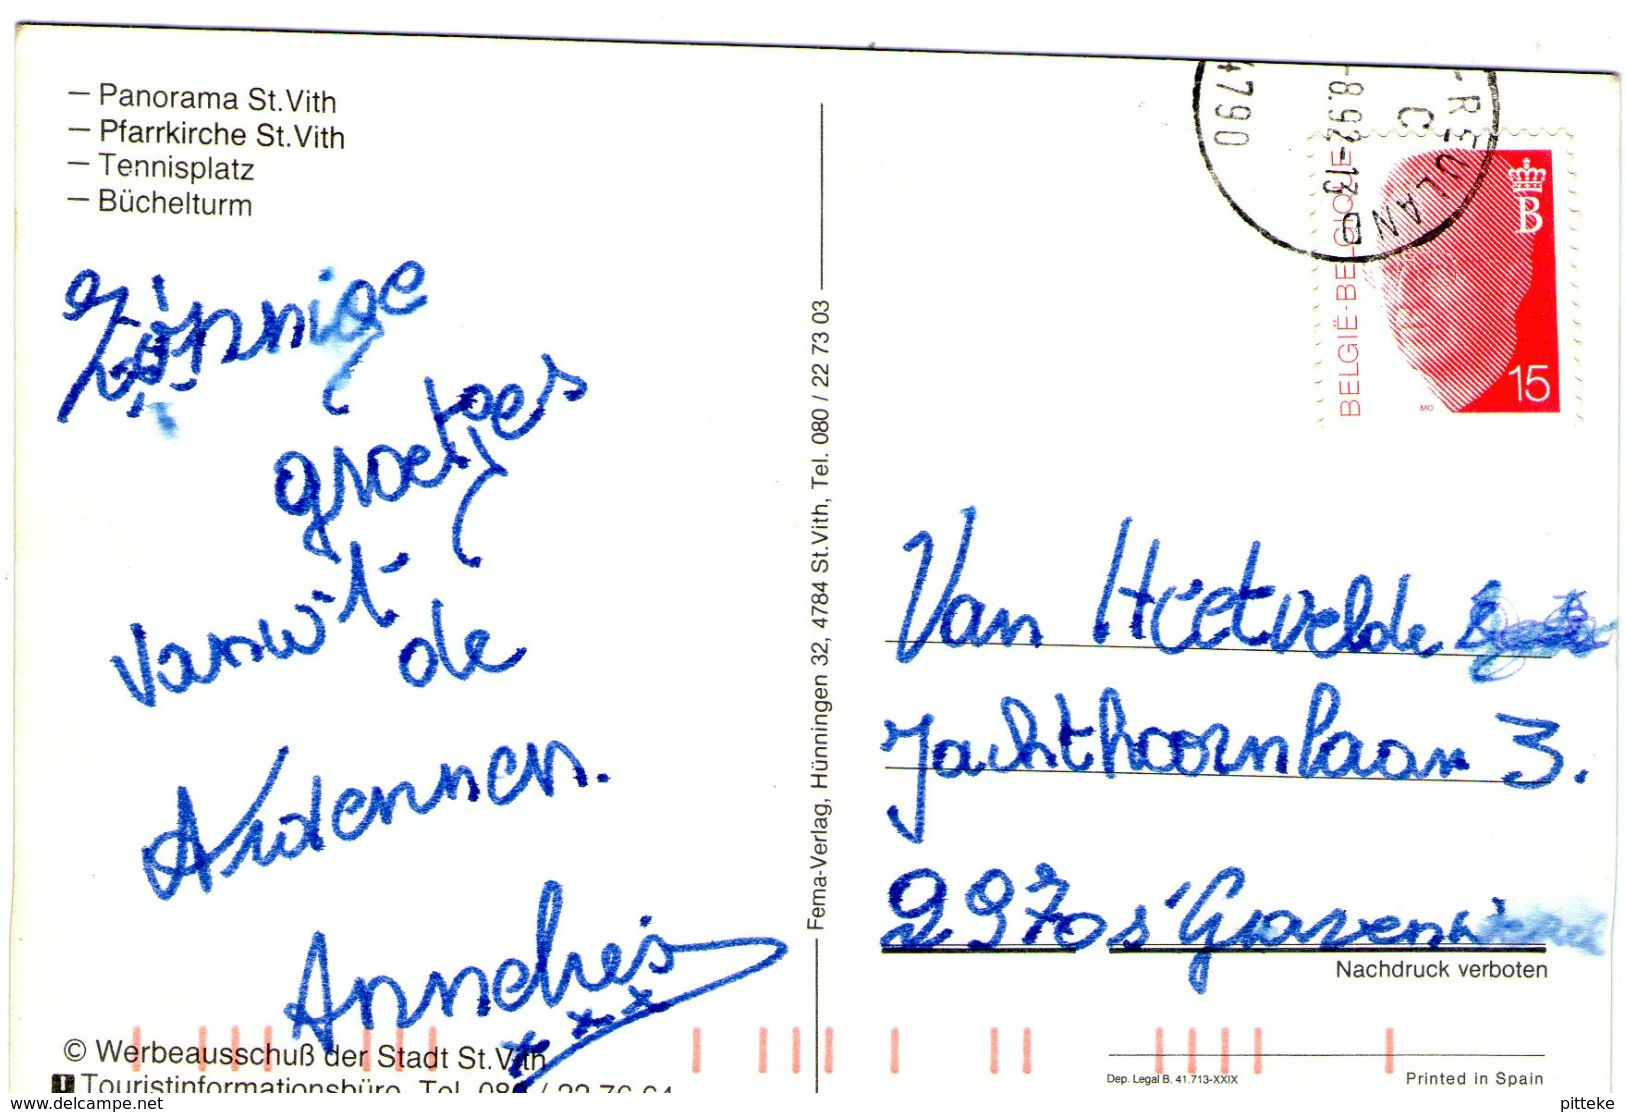 – Panorama St.Vith
– Pfarrkirche St.Vith
– Tennisplatz
– Büchelturm
Zonnige
groetjes
vanuit
de
Ardennen.
Annelies
x x x
© Werbeausschuß der Stadt St.Vith
Touristinformationsbüro, Tel. 080 / 22 76 64
Fema-Verlag, Hünningen 32, 4784 St.Vith, Tel. 080 / 22 73 03
-REULAND
C
-8.92-13
4790
BELGIË·BELGIQUE
B
15
MO
Van Heetvelde
Jachthoornlaan 3.
2970 's Gravenwezel
Nachdruck verboten
Dep. Legal B. 41.713-XXIX
Printed in Spain
www.delcampe.net
pitteke